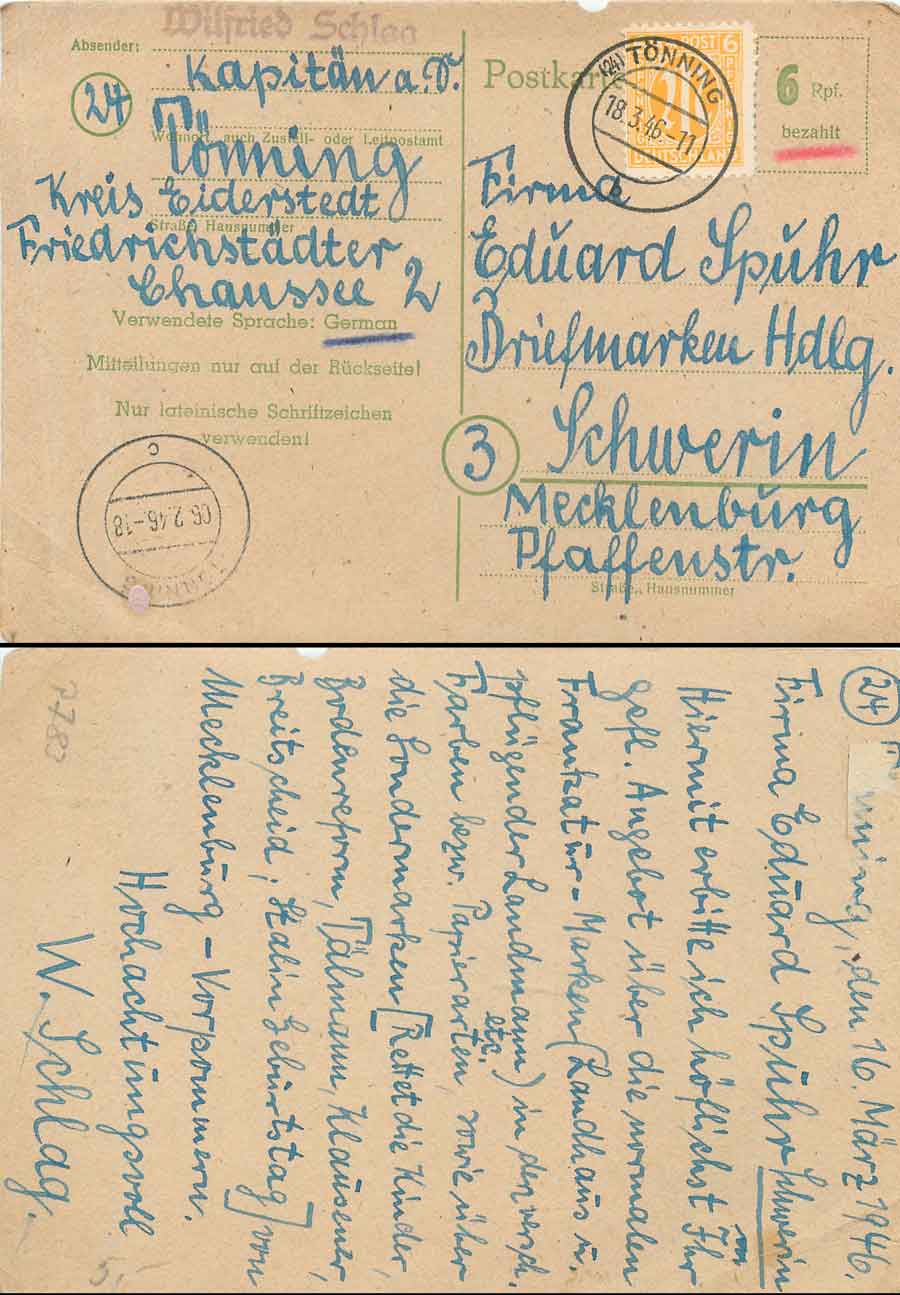 Wilfried Schlag
Absender:
Kapitän a. D.
24
Wohnort, auch Zustell- oder Leitpostamt
Tönning
Kreis Eiderstedt
Straße, Hausnummer
Friedrichstädter
Chaussee 2
Verwendete Sprache: German
Mitteilungen nur auf der Rückseite!
Nur lateinische Schriftzeichen
verwenden!
C
06.2.46-18
TÖNNING
Postkarte
POST 6
DEUTSCHLAND
(24) TÖNNING
18.3.46.-11
6 Rpf.
bezahlt
Firma
Eduard Spuhr
Briefmarken Hdlg.
3
Schwerin
Mecklenburg
Pfaffenstr.
Straße, Hausnummer
24 Tönning, den 16. März 1946.
Firma Eduard Spuhr Schwerin
Hiermit erbitte ich höflichst Ihr
gefl. Angebot über die normalen
Frankatur-Marken (Landhaus u.
pflügender Landmann) in den versch.
Farben bezw. Papierarten etc, sowie über
die Sondermarken [Rettet die Kinder,
Bodenreform, Tälmann, Klausener,
Breitscheid, Stalin Geburtstag] von
Mecklenburg-Vorpommern.
Hochachtungsvoll
W. Schlag.
7783
5,-